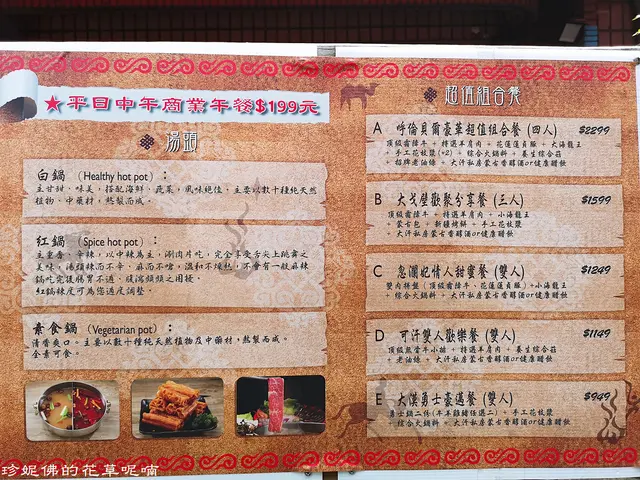 ★平日中午商業午餐$199元
湯頭
白鍋 (Healthy hot pot)：
主甘甜、味美，搭配海鮮、蔬菜，風味絕佳，主要以數十種純天然
植物、中藥材，熬製而成。
紅鍋 (Spice hot pot)：
主重香、辛辣，以中辣為主，涮肉片吃，完全享受舌尖上跳舞之
美味，湯頭辣而不辛、麻而不嗆，溫和不燥熱，不會有一般麻辣
鍋吃完後腸胃不適、腹瀉頻頻之困擾。
紅鍋辣度可為您適度調整。
素食鍋 (Vegetarian pot)：
清香爽口。主要以數十種純天然植物及中藥材，熬製而成。
全素可食。
超值組合餐
A 呼倫貝爾豪華超值組合餐 (四人) $2299
頂級霜降牛 + 特選羊肉 + 花蓮蓬貝豚 + 大海龍王
+ 手工花枝漿(*2) + 綜合火鍋料 + 養生綜合菇
+ 招牌老油條 + 大汗私房蒙古香醇酒or健康醋飲
B 大戈壁歡聚分享餐 (三人) $1599
頂級霜降牛 + 特選羊肉 + 小海龍王
+ 蒙古包 + 新疆烤餅 + 手工花枝漿
+ 大汗私房蒙古香醇酒or健康醋飲
C 忽瀾妃情人甜蜜餐 (雙人) $1249
雙肉拼盤（頂級霜降牛、花蓮蓬貝豚）+小海龍王
+ 綜合火鍋料 + 大汗私房蒙古香醇酒or健康醋飲
D 可汗雙人歡樂餐 (雙人) $1149
頂級無骨牛小排 + 特選羊肉 + 養生綜合菇
+ 老油條 + 大汗私房蒙古香醇酒or健康醋飲
E 大漠勇士豪邁餐 (雙人) $949
勇士鍋二份(牛羊雞豬任選二) + 手工花枝漿
+ 綜合火鍋料 + 大汗私房蒙古香醇酒or健康醋飲
珍妮佛的花草呢喃